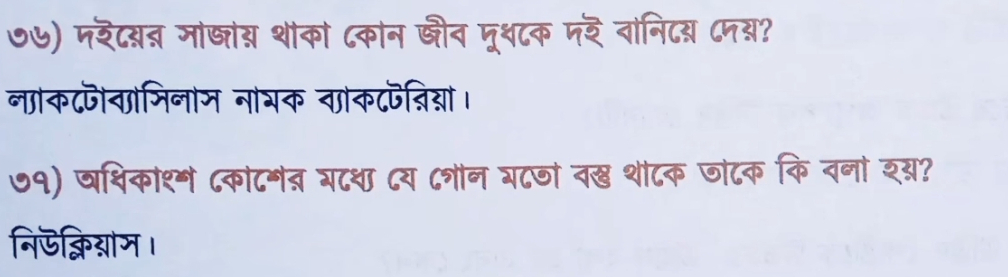 ৩৬) দইয়ের সাজায় থাকা কোন জীব দুধকে দই বানিয়ে দেয়?
ল্যাকটোব্যাসিলাস নামক ব্যাকটেরিয়া।
৩৭) অধিকাংশ কোশের মধ্যে যে গোল মতো বস্তু থাকে তাকে কি বলা হয়?
নিউক্লিয়াস।